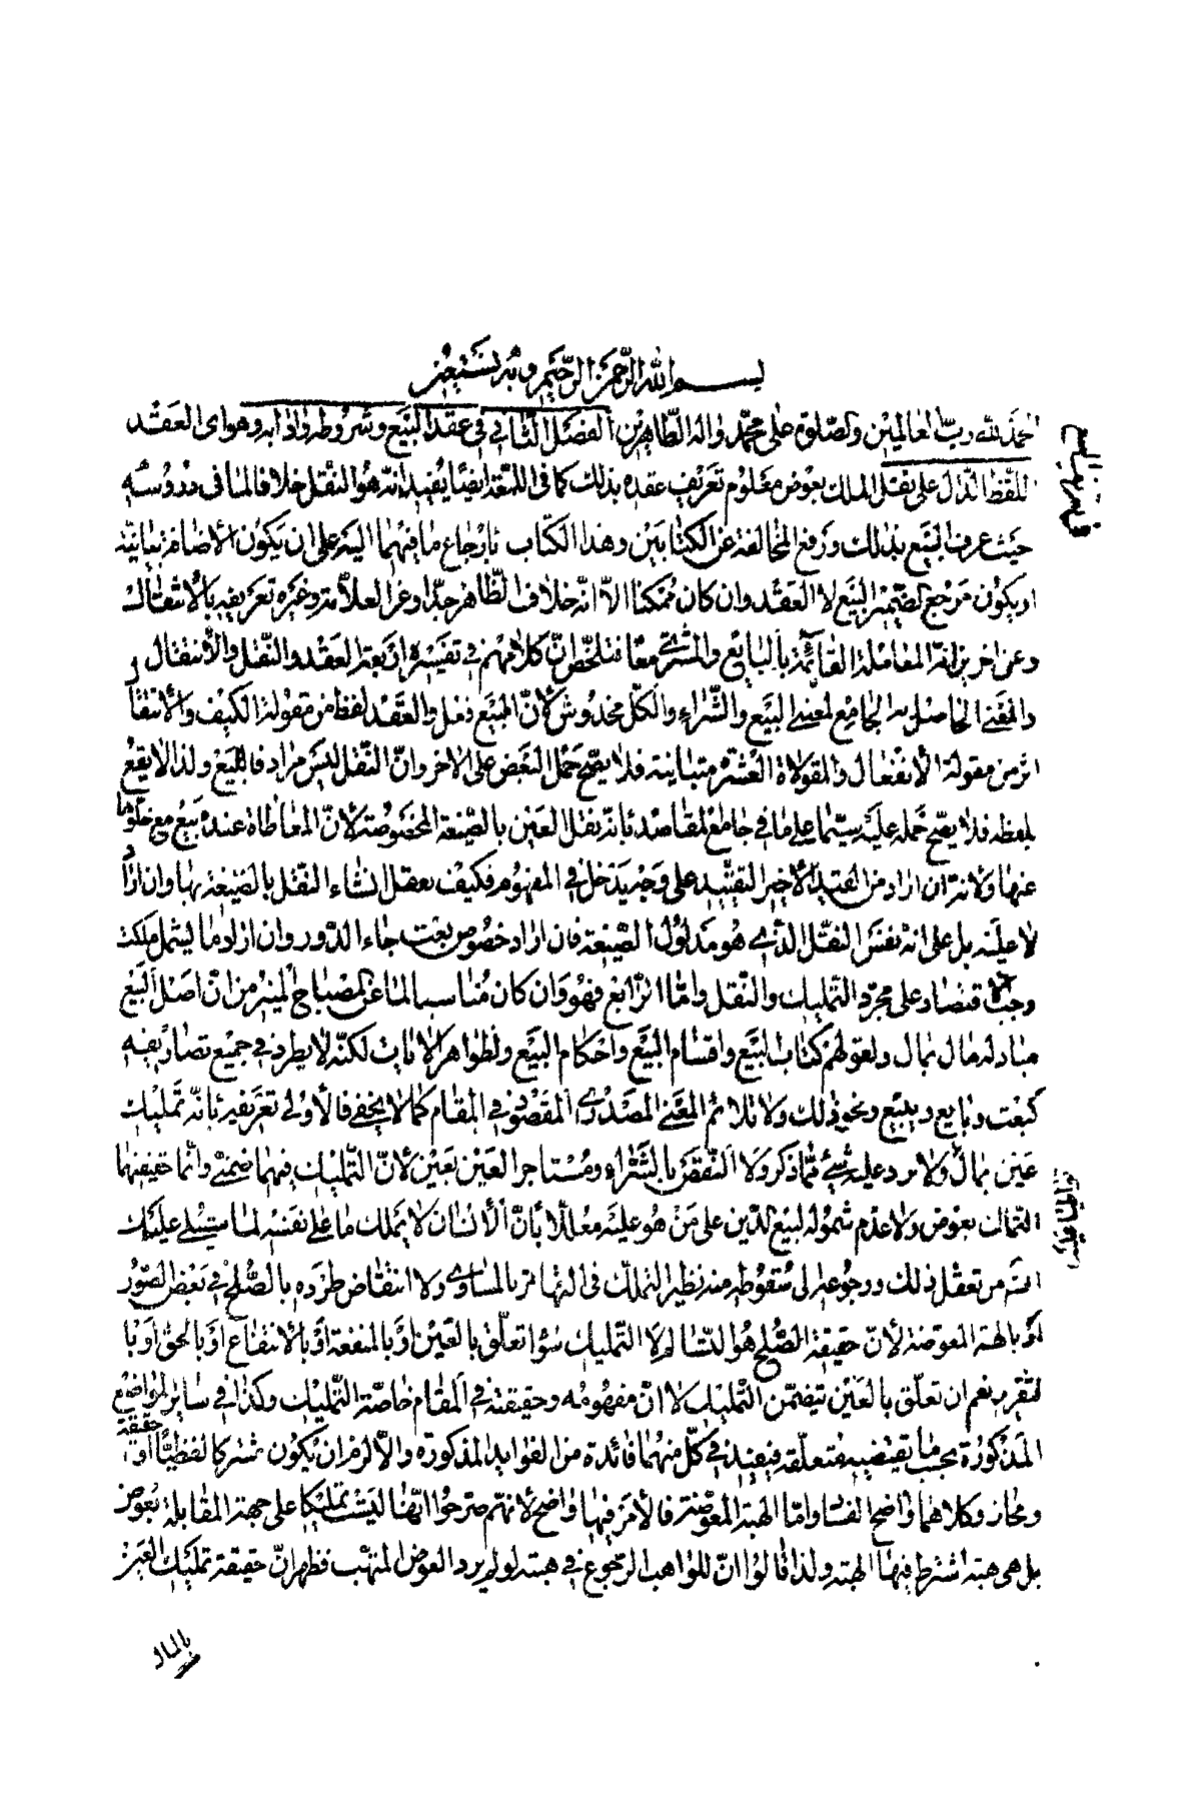 بسم الله الرحمن الرحيم وبه نستعين
الحمد لله رب العالمين والصلوة على محمد واله الطاهرين الفصل الثاني في عقد البيع وشروطه وادابه وهو اى العقد
اللفظ الدال على نقل الملك بعوض معلوم تعريف عقده بذلك كما فى اللمعة ايضا يفيد انه هو النقل خلافا لما فى دروسه
حيث عرف البيع بذلك ورفع المخالفة عن الكتابين وهذا الكتاب بارجاع ما فيهما اليه على ان يكون الاضافة بيانية
او يكون مرجع الضمير البيع لا العقد وان كان ممكنا الا انه خلاف الظاهر جدا وعن العلامة وغيره تعريفه بالانتقال
وعن اخرين انه المعاملة القائمة بالبايع والمشترى معا فتلخص ان كلامهم في تفسيره اربعة العقد والنقل والانتقال و
المعنى الحاصل به الجامع لمعنى البيع والشراء والكل مخدوش لان البيع فعل والعقد لفظ من مقولة الكيف والانتقا
اثر من مقولة الانفعال والمقولات العشرة متباينة فلا يصح حمل البعض على الاخر وان النقل ليس مرادفا للبيع ولذا لا يقع
بلفظه فلا يصح حمله عليه سيما على ما في جامع المقاصد بانه نقل العين بالصيغة المخصوصة لان المعاطاة عنده بيع مع خلوها
عنها ولانه ان اراد من القيد الاخير التقييد على وجه يدخل في المفهوم فكيف يعقل انشاء النقل بالصيغة بها وان اراد
لا عليه بل على انه نفس النقل الذى هو مدلول الصيغة فان اراد خصوص بعت جاء الدور وان اراد ما يشمل ملكت
وجب الاقتصار على مجرد التمليك والنقل واما الرابع فهو وان كان مناسبا لما عن المصباح المنير من ان اصل البيع
مبادلة مال بمال ولقولهم كتاب البيع واقسام البيع واحكام البيع ولظواهر الايات لكنه لا يطرد في جميع تصاريفه
كبعت وبايع ويبيع ونحو ذلك ولا تلائم المعنى المصدرى المقصود في المقام كما لا يخفى فالاولى تعريفه بانه تمليك
عين بمال ولا يرد عليه شئ مما ذكر ولا النقض بالشراء ومستاجر العين بعين لان التمليك فيهما ضمنى وانما حقيقتهما
التملك بعوض ولا عدم شموله لبيع الدين على من هو عليه معللا بان الانسان لا يملك ما على نفسه لما سيتلى عليك
انه من تعقل ذلك ورجوعه الى سقوطه منه نظير التملك فى التهاتر بالمساوى ولا انتقاض طرده بالصلح في بعض الصور
او بالهبة المعوضة لان حقيقة الصلح هو التسالم لا التمليك سواء تعلق بالعين او بالمنفعة او بالانتفاع او بالحق او با
لتقرير نعم ان تعلق بالعين يتضمن التمليك لا ان مفهومه وحقيقته في المقام خاصة التمليك وكذا في ساير المواضع
المذكورة بحسب ما يقتضيه متعلقه فيفيد في كل منهما فائدة من الفوايد المذكورة والا لزم ان يكون مشتركا لفظيا او حقيقة
ومجاز وكلاهما واضح الفساد واما الهبة المعوضة فالامر فيها واضح لانهم صرحوا انها ليست تمليكا على جهة المقابلة بعوض
بل هى هبة اشترط فيها الهبة ولذا قالوا ان للواهب الرجوع في هبته لو لم يرد العوض المتهب فظهر ان حقيقة تمليك العين
بالمال